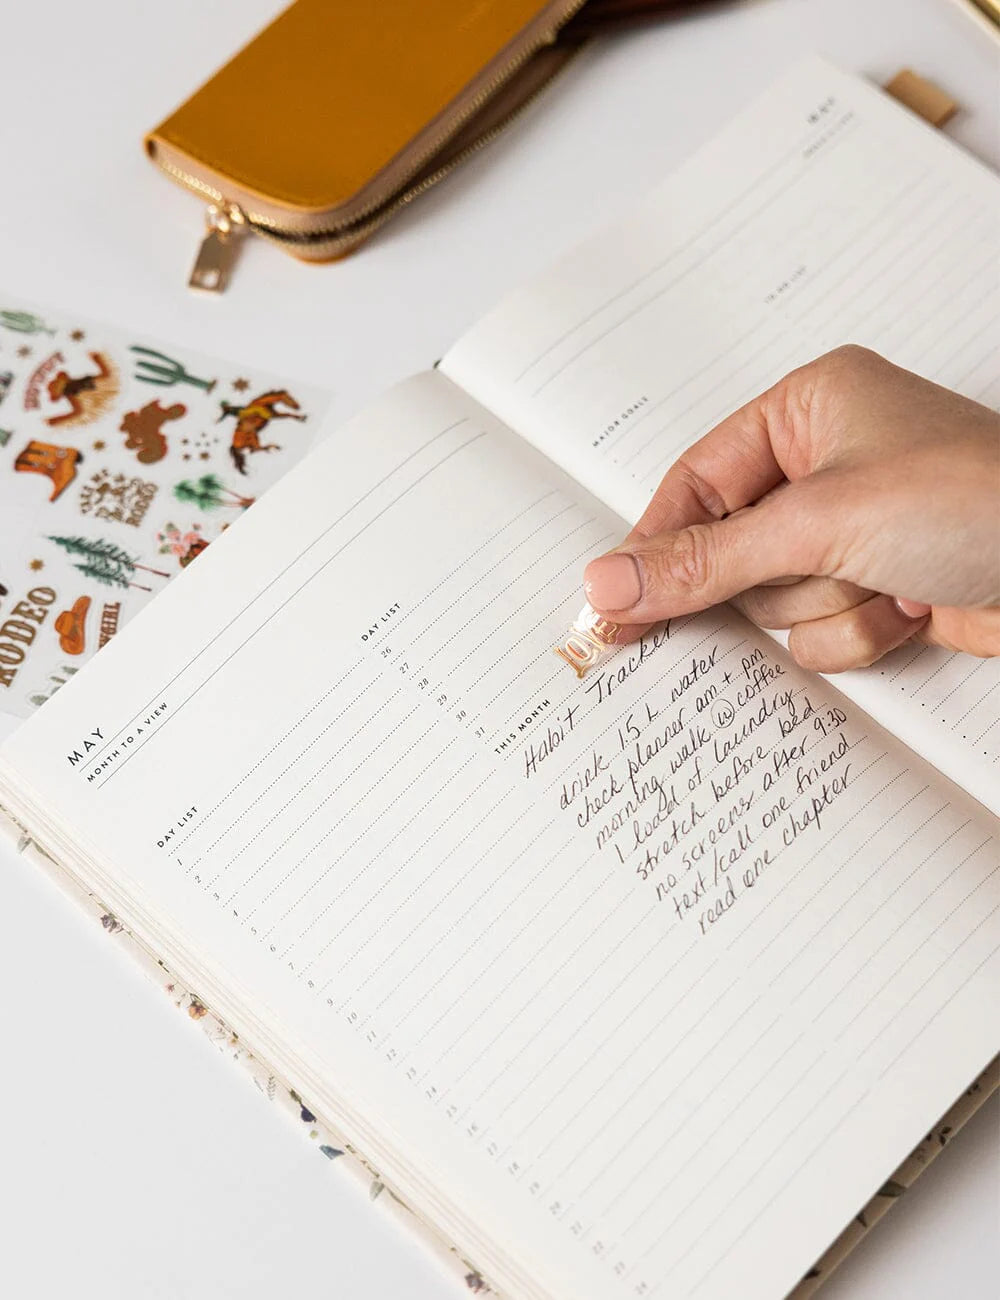 MAY
MONTH TO A VIEW
DAY LIST
1
2
3
4
5
6
7
8
9
10
11
12
13
14
15
16
17
18
19
20
21
22
23
24
DAY LIST
26
27
28
29
30
31
THIS MONTH
Habit Tracker
drink 1.5 L water
check planner am + pm
morning walk w coffee
1 load of laundry
stretch before bed
no screens after 9:30
text/call one friend
read one chapter
MAJOR GOALS
TO DO LIST
MAY
RODEO
RODEO